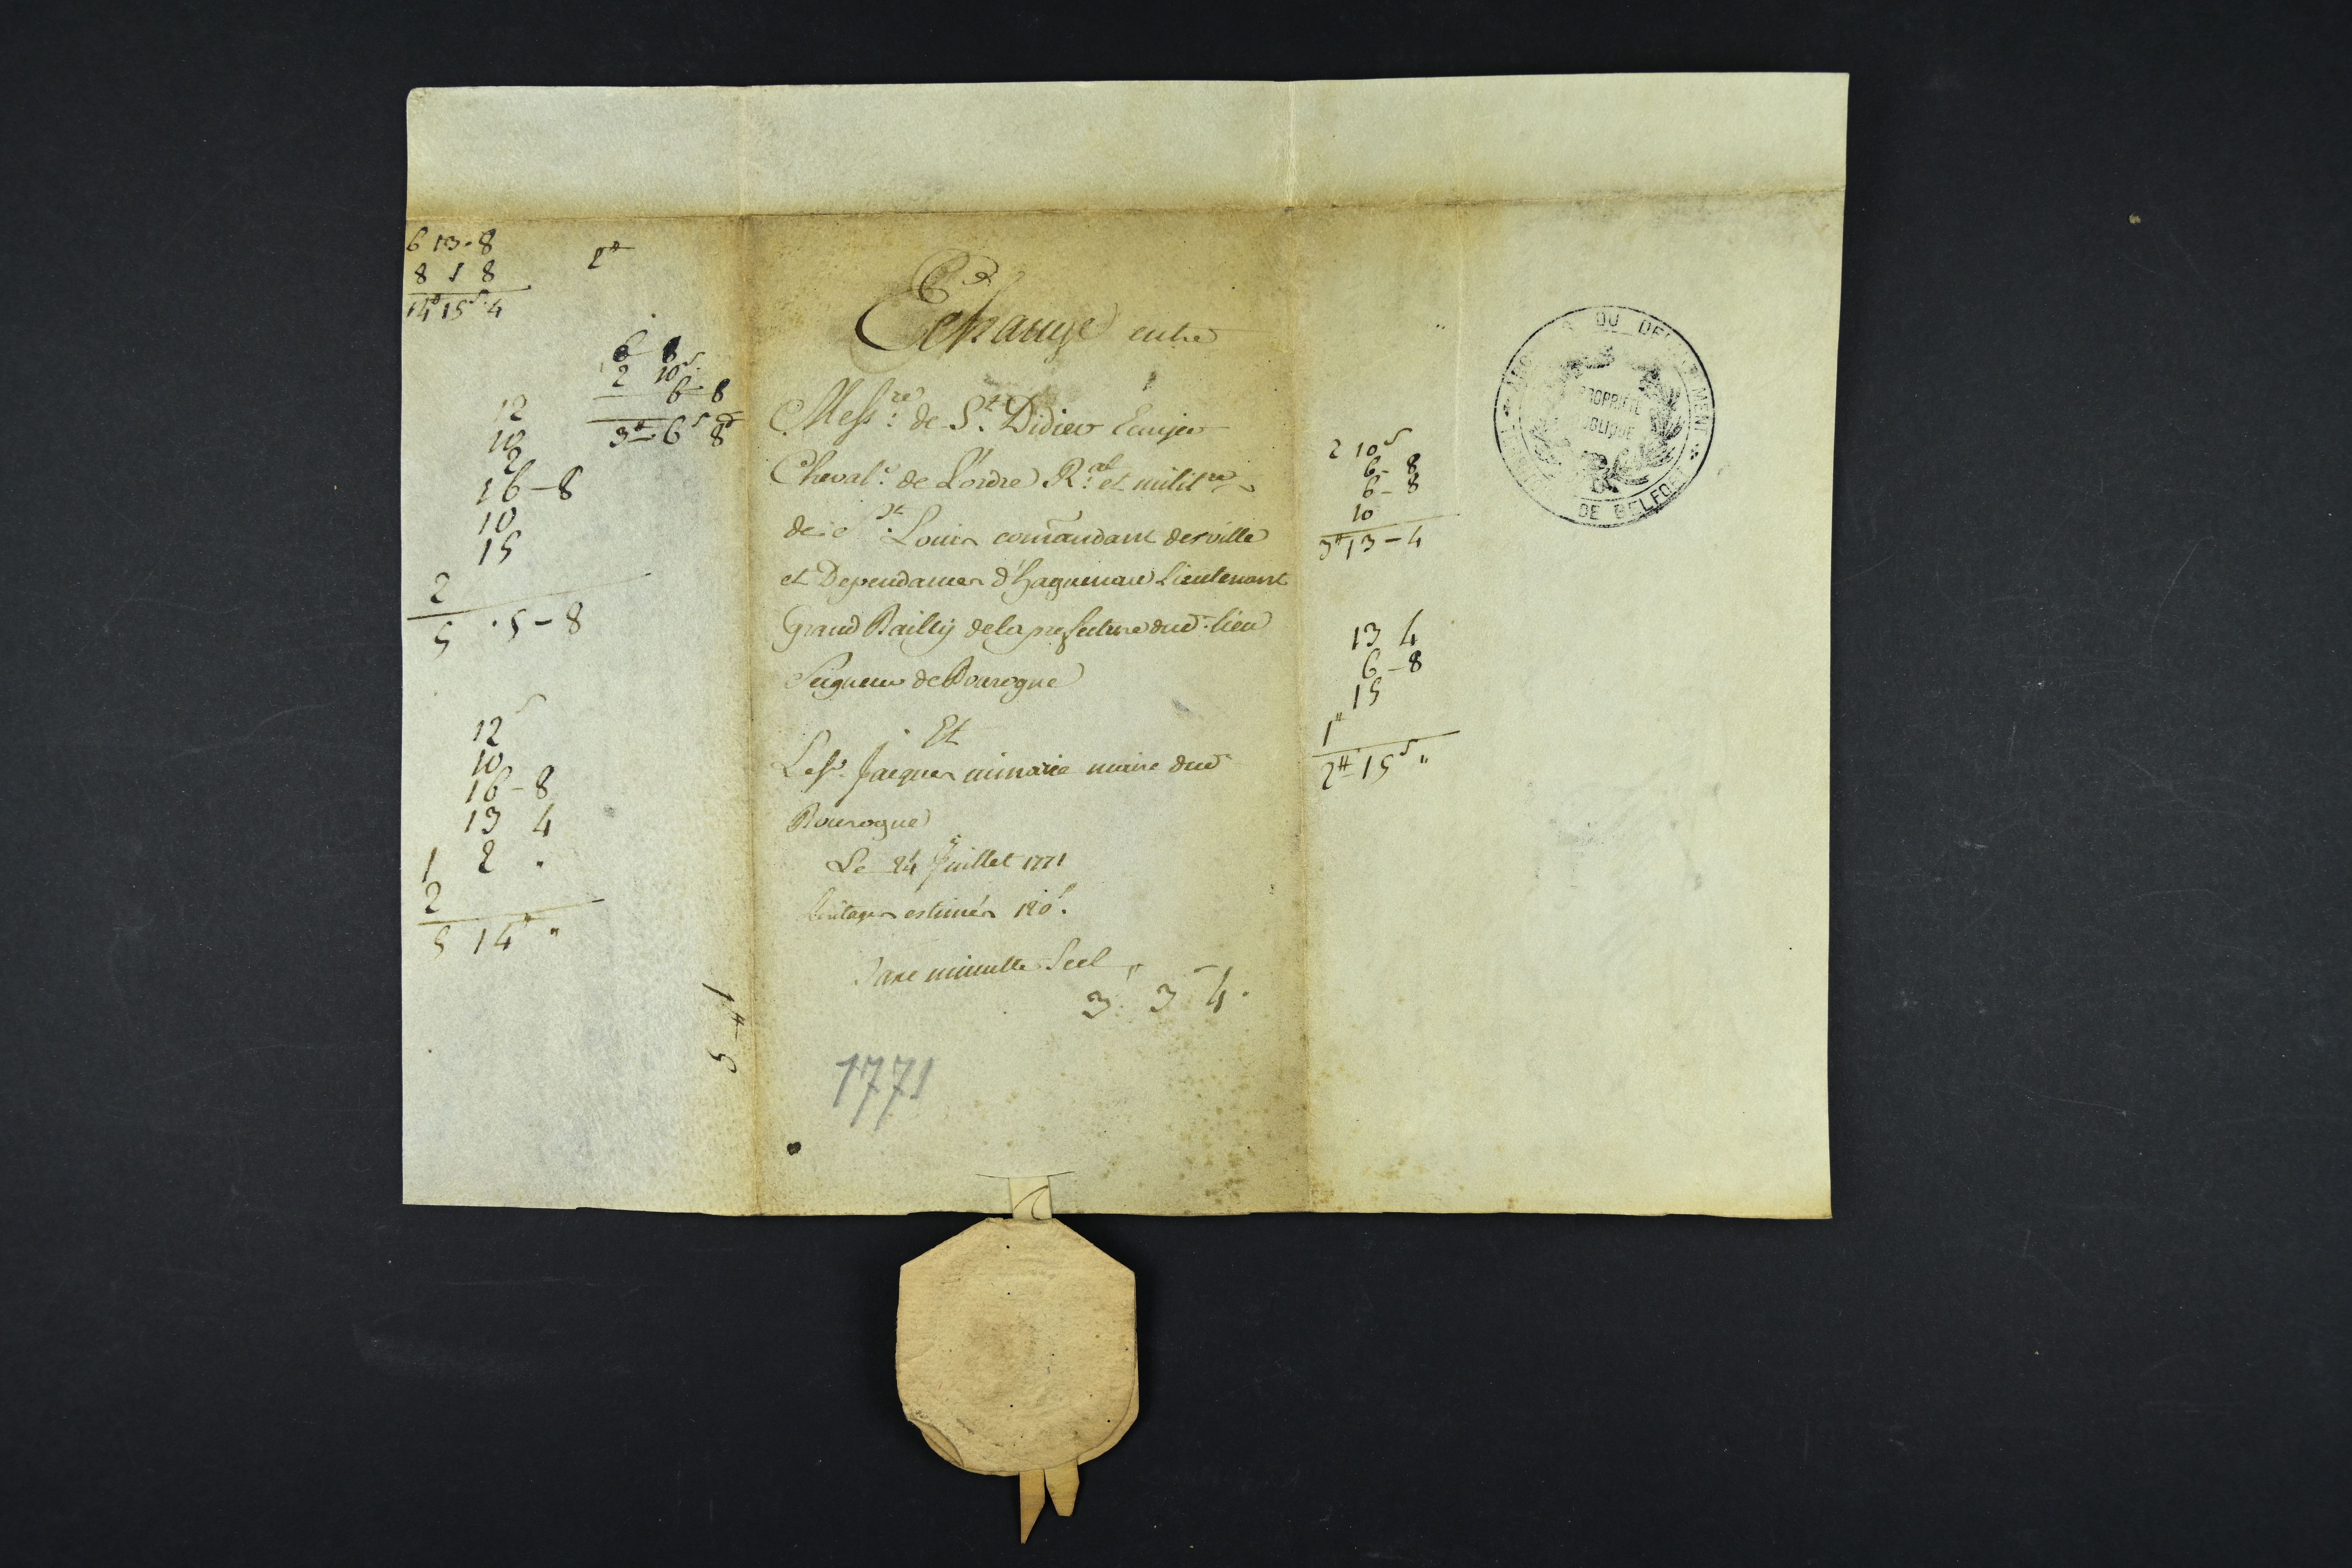 6 13 - 8
8 1 8
14# 15s 4
2#
6 8
2 10s
6 - 8
3# 6s 8d
12
10
2
16 - 8
10
15
2
5 . 5 - 8
12s
10
16 - 8
13 4
1 2 .
2
5 14 "
1# 5
Echange entre
Messre. de St. Didier Ecuyer
Chevalr. de L'ordre Ral. et militre
de St. Louis comandant des ville
et Dependances d'haguenau Lieutenant
Grand Bailly de la prefecture dud. lieu
Seigneur de Bourogne
Et
Le sr. Jacques minarie maire dud
Bourogne
Le 24 Juillet 1771
héritages estimés 120l.
Taxe minutte Scel
3. 3 4.
1771
2 10s
6 - 8
6 - 8
10
3# 13 - 4
13 4
6 - 8
15
1#
2# 15s "
DU DEPARTEMENT
PROPRIÉTÉ
PUBLIQUE
DE BELFORT